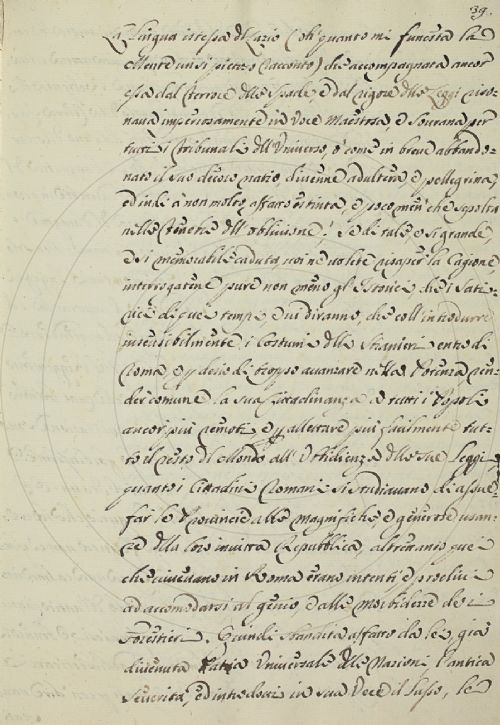 39.
La Lingua istessa di Lazio (oh quanto mi funesta la
Mente un sì pietoso racconto) che accompagnata ancor
essa dal terrore delle Spade, e dal rigore delle Leggi riso-
nava imperiosamente in Voce Maestosa, e Sovrana per
tutti i Tribunali dell'Universo, o come in breve abbando-
nato il suo decoro natio, divenne adultera, e pellegrina,
ed indi a non molto affatto estinta, e poco men' che sepolta
nelle tenebre dell'oblivione! Se di tale, e sì grande,
e sì memorabile caduta, voi ne volete risaper la Cagione
interrogatene pure non meno gl'Istorici che i Sati-
rici di que' tempi, e vi diranno, che coll'introdurre
insensibilmente i Costumi delle Straniere entro di
Roma, e per desio di troppo avanzare nella Potenza ren-
der comune la sua Cittadinanza a tutti i Popoli
ancor più remoti e per allettare più facilmente tut-
to il resto del Mondo all'Obbedienza delle sue Leggi,
quanto i Cittadini Romani si studiavano di assue-
far le Provincie alle magnifiche, e generose usan-
ze della loro invitta Repubblica, altrettanto quei
che vivevano in Roma erano intenti, e proclivi
ad accomodarsi al genio, e alle morbidezze de i
Forestieri. Quindi sbandita affatto da lei, già
divenuta Patria Universale delle Nazioni, l'antica
Severità, ed introdotti in sua Vece il lusso, le